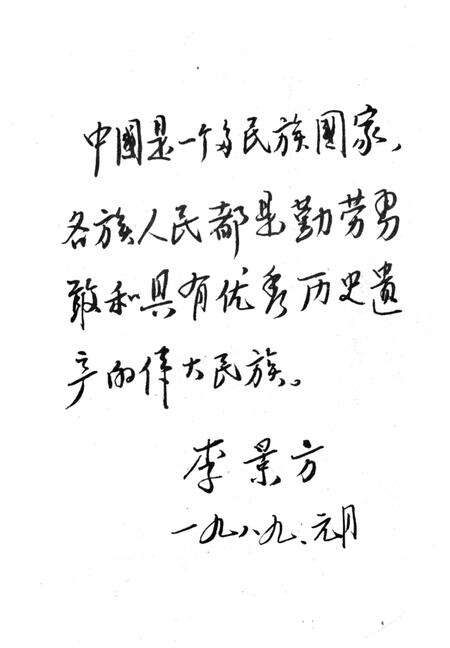 中國是一个多民族國家，
各族人民都是勤劳勇
敢和具有优秀历史遗
产的伟大民族。
李景方
一九八九、元月